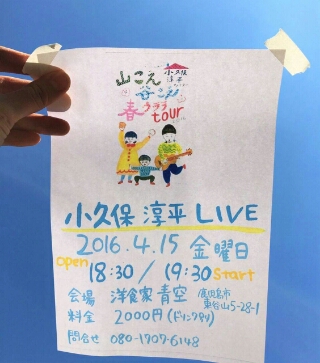 小久保
淳平
山こえ
谷こえ
春ラララ
tour
小久保 淳平 LIVE
2016.4.15 金曜日
open 18:30 / 19:30 start
会場 洋食家 青空 鹿児島市
東谷山5-28-1
料金 2000円(ドリンク付)
問合せ 080-1707-6148